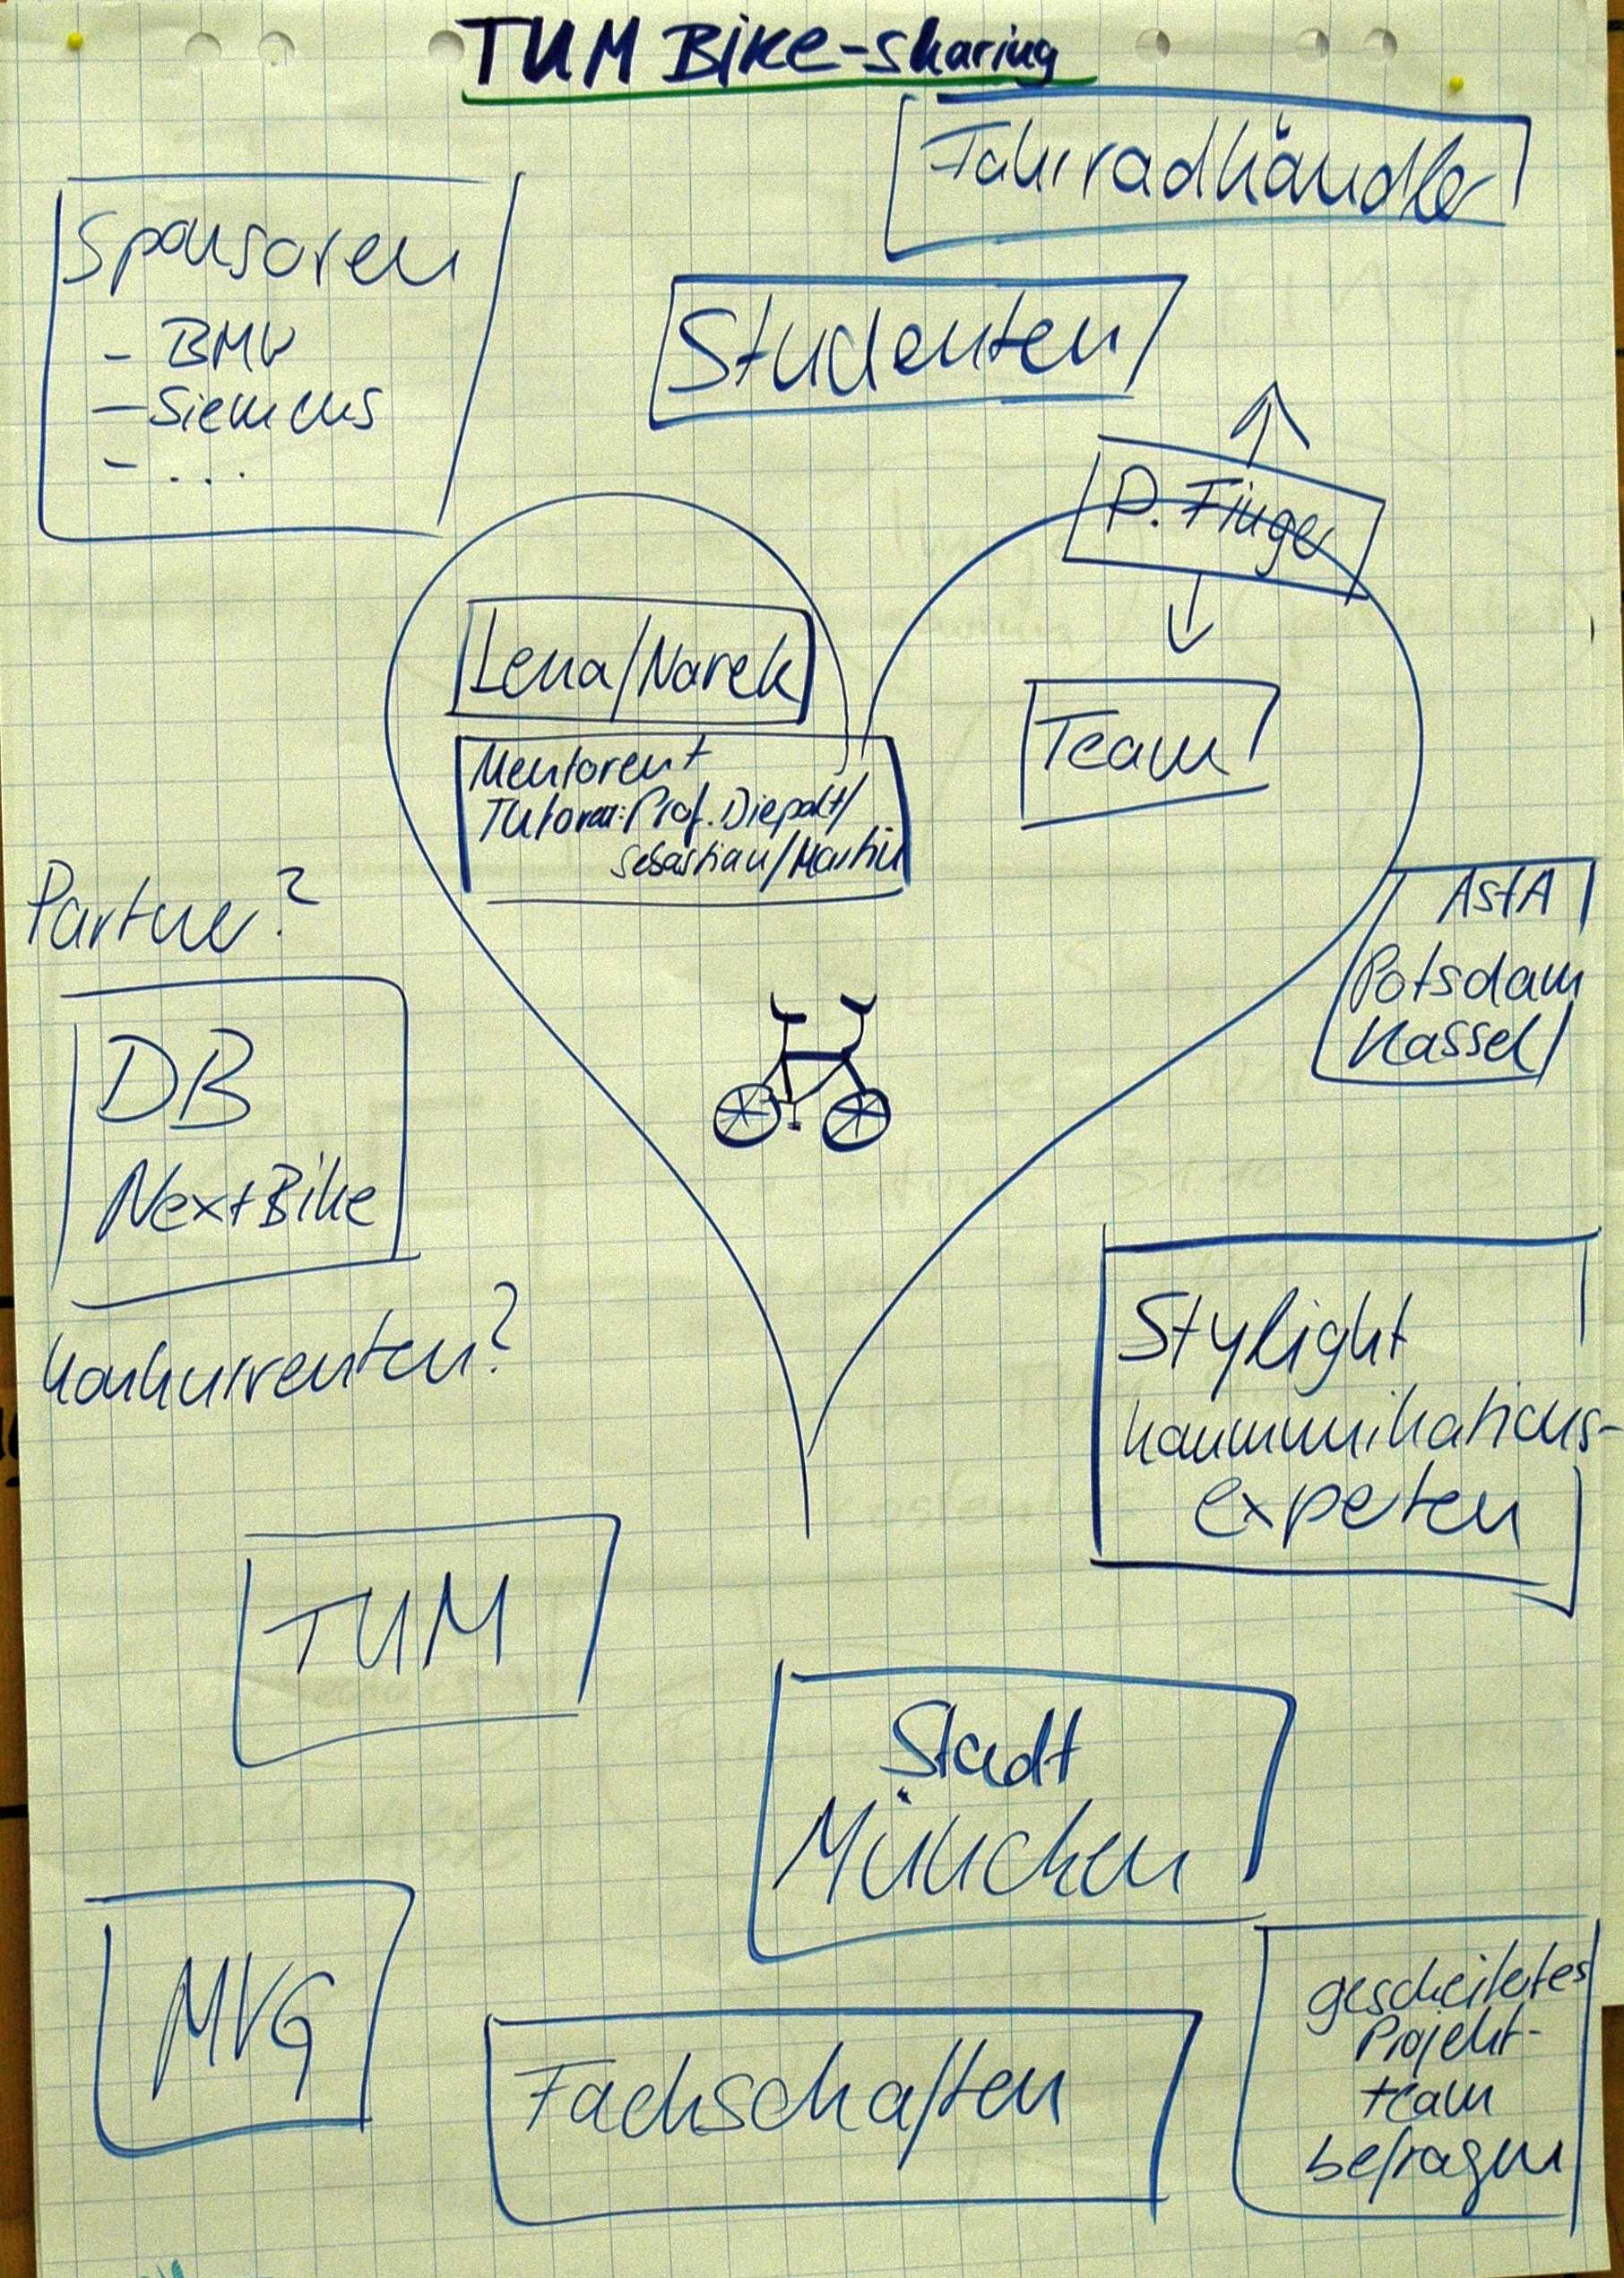 TUM Bike-sharing
Fahrradhändler
Sponsoren
- BMW
- Siemens
- ...
Studenten
P. Finger
Lena/Narek
Team
Mentoren+
Tutoren: Prof. Diepolt/
Sebastian/Martin
Partner?
AStA
Potsdam
Kassel
DB
NextBike
Konkurrenten?
Stylight
Kommunikations-
expeten
TUM
Stadt
München
MVG
Fachschaften
gescheitertes
Projekt-
team
befragen